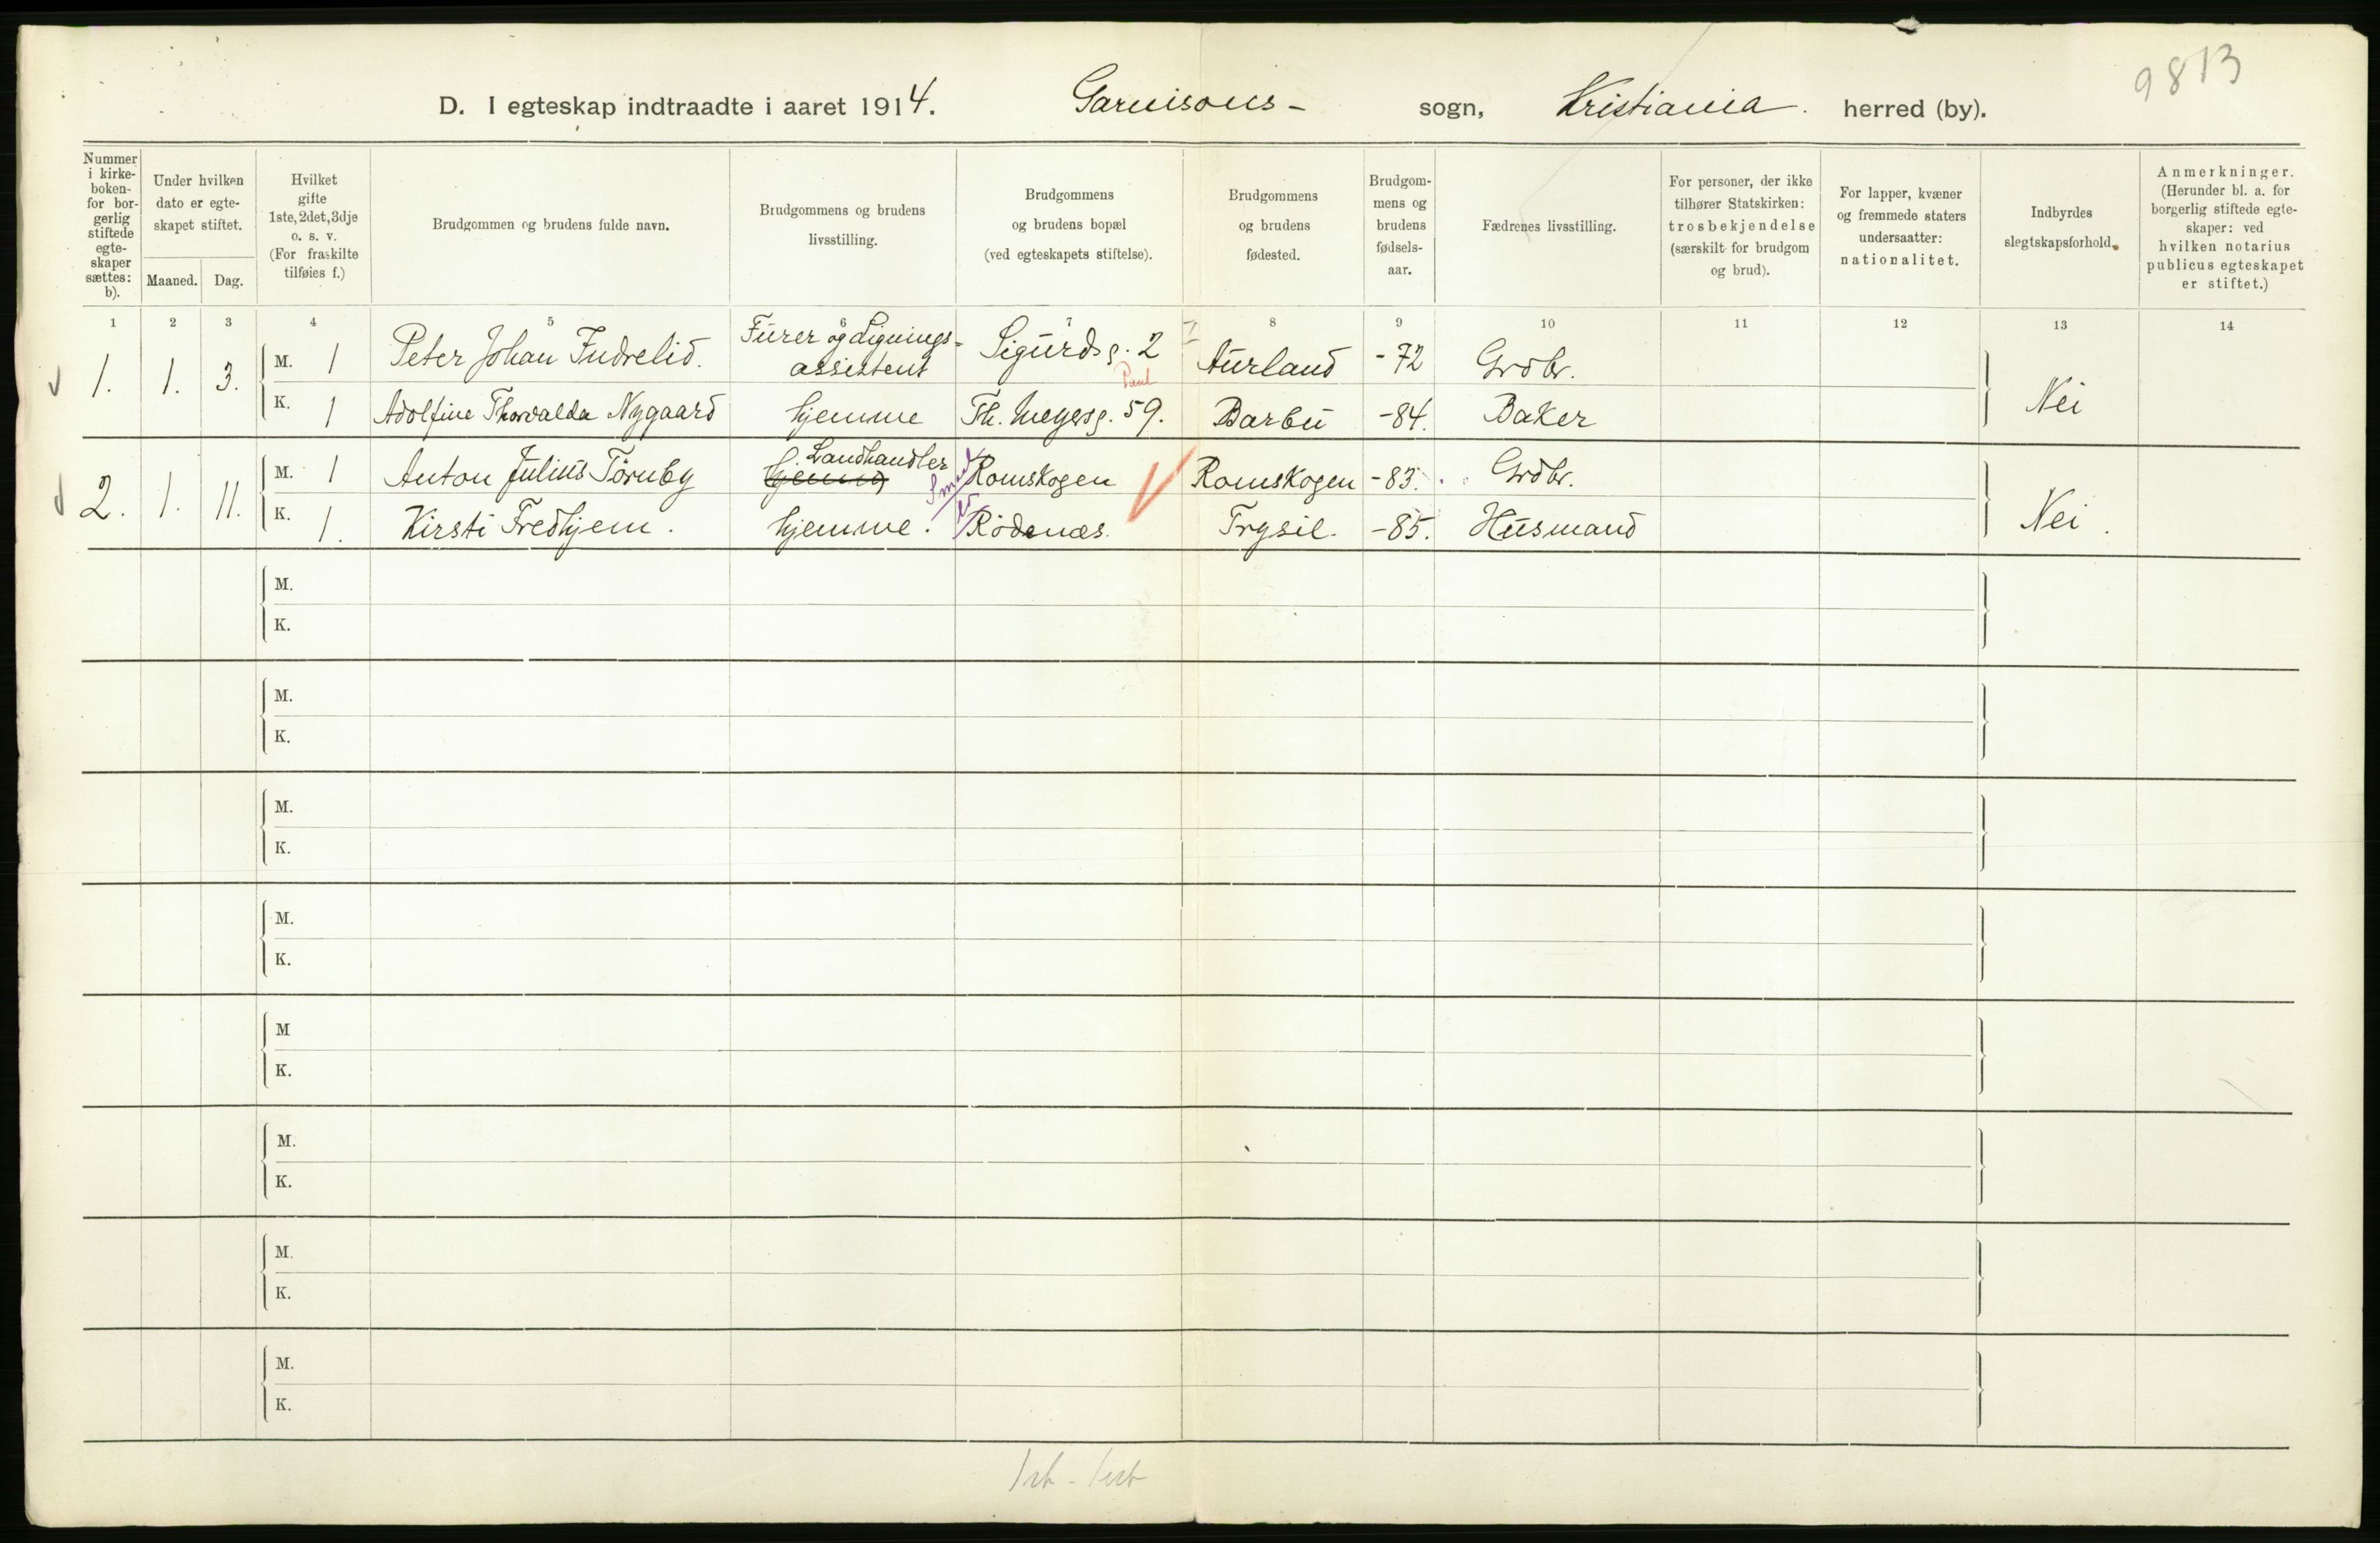 9813
D. I egteskap indtraadte i aaret 1914. Garnisons- sogn, Kristiania. herred (by).
Nummer i kirkeboken- for borgerlig stiftede egteskaper sættes: b).
Under hvilken dato er egteskapet stiftet.
Maaned. Dag.
Hvilket gifte 1ste, 2det, 3dje o. s. v. (For fraskilte tilføies f.)
Brudgommen og brudens fulde navn.
Brudgommens og brudens livsstilling.
Brudgommens og brudens bopæl (ved egteskapets stiftelse).
Brudgommens og brudens fødested.
Brudgommens og brudens fødselsaar.
Fædrenes livsstilling.
For personer, der ikke tilhører Statskirken: trosbekjendelse (særskilt for brudgom og brud).
For lapper, kvæner og fremmede staters undersaatter: nationalitet.
Indbyrdes slegtskapsforhold.
Anmerkninger. (Herunder bl. a. for borgerlig stiftede egteskaper: ved hvilken notarius publicus egteskapet er stiftet.)
1 2 3 4 5 6 7 8 9 10 11 12 13 14
1. 1. 3. M. 1 Peter Johan Indrelid. Furer og Lignings- assistent Sigurdsg. 2 Aurland -72 Grdbr. Nei
K. 1 Adolfine Thorvalda Nygaard hjemme Th. Meyersg. 59. Paul Barbu -84. Baker
2. 1. 11. M. 1 Anton Julius Törnby Landhandler hjemme Romskogen Romskogen -83. Grdbr. Nei.
K. 1. Kirsti Fredhjem. hjemme. Rödenæs. Trysil. -85. Husmand
M.
K.
M.
K.
M.
K.
M.
K.
M
K.
M.
K.
M.
K.
M.
K.